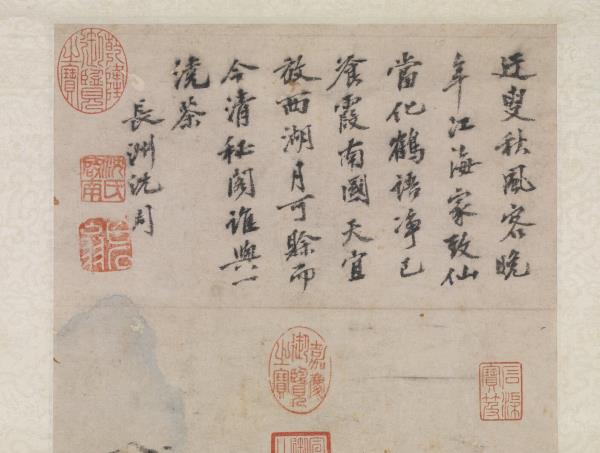 迂叟秋風客晚
年江海家致仙
當化鶴語淨已
飡霞南國天宜
放西湖月可賒而
今清秘閣誰與一
澆茶
長洲沈周
乾隆御覽之寶
沈氏啟南
嘉慶御覽之寶
石渠寶笈